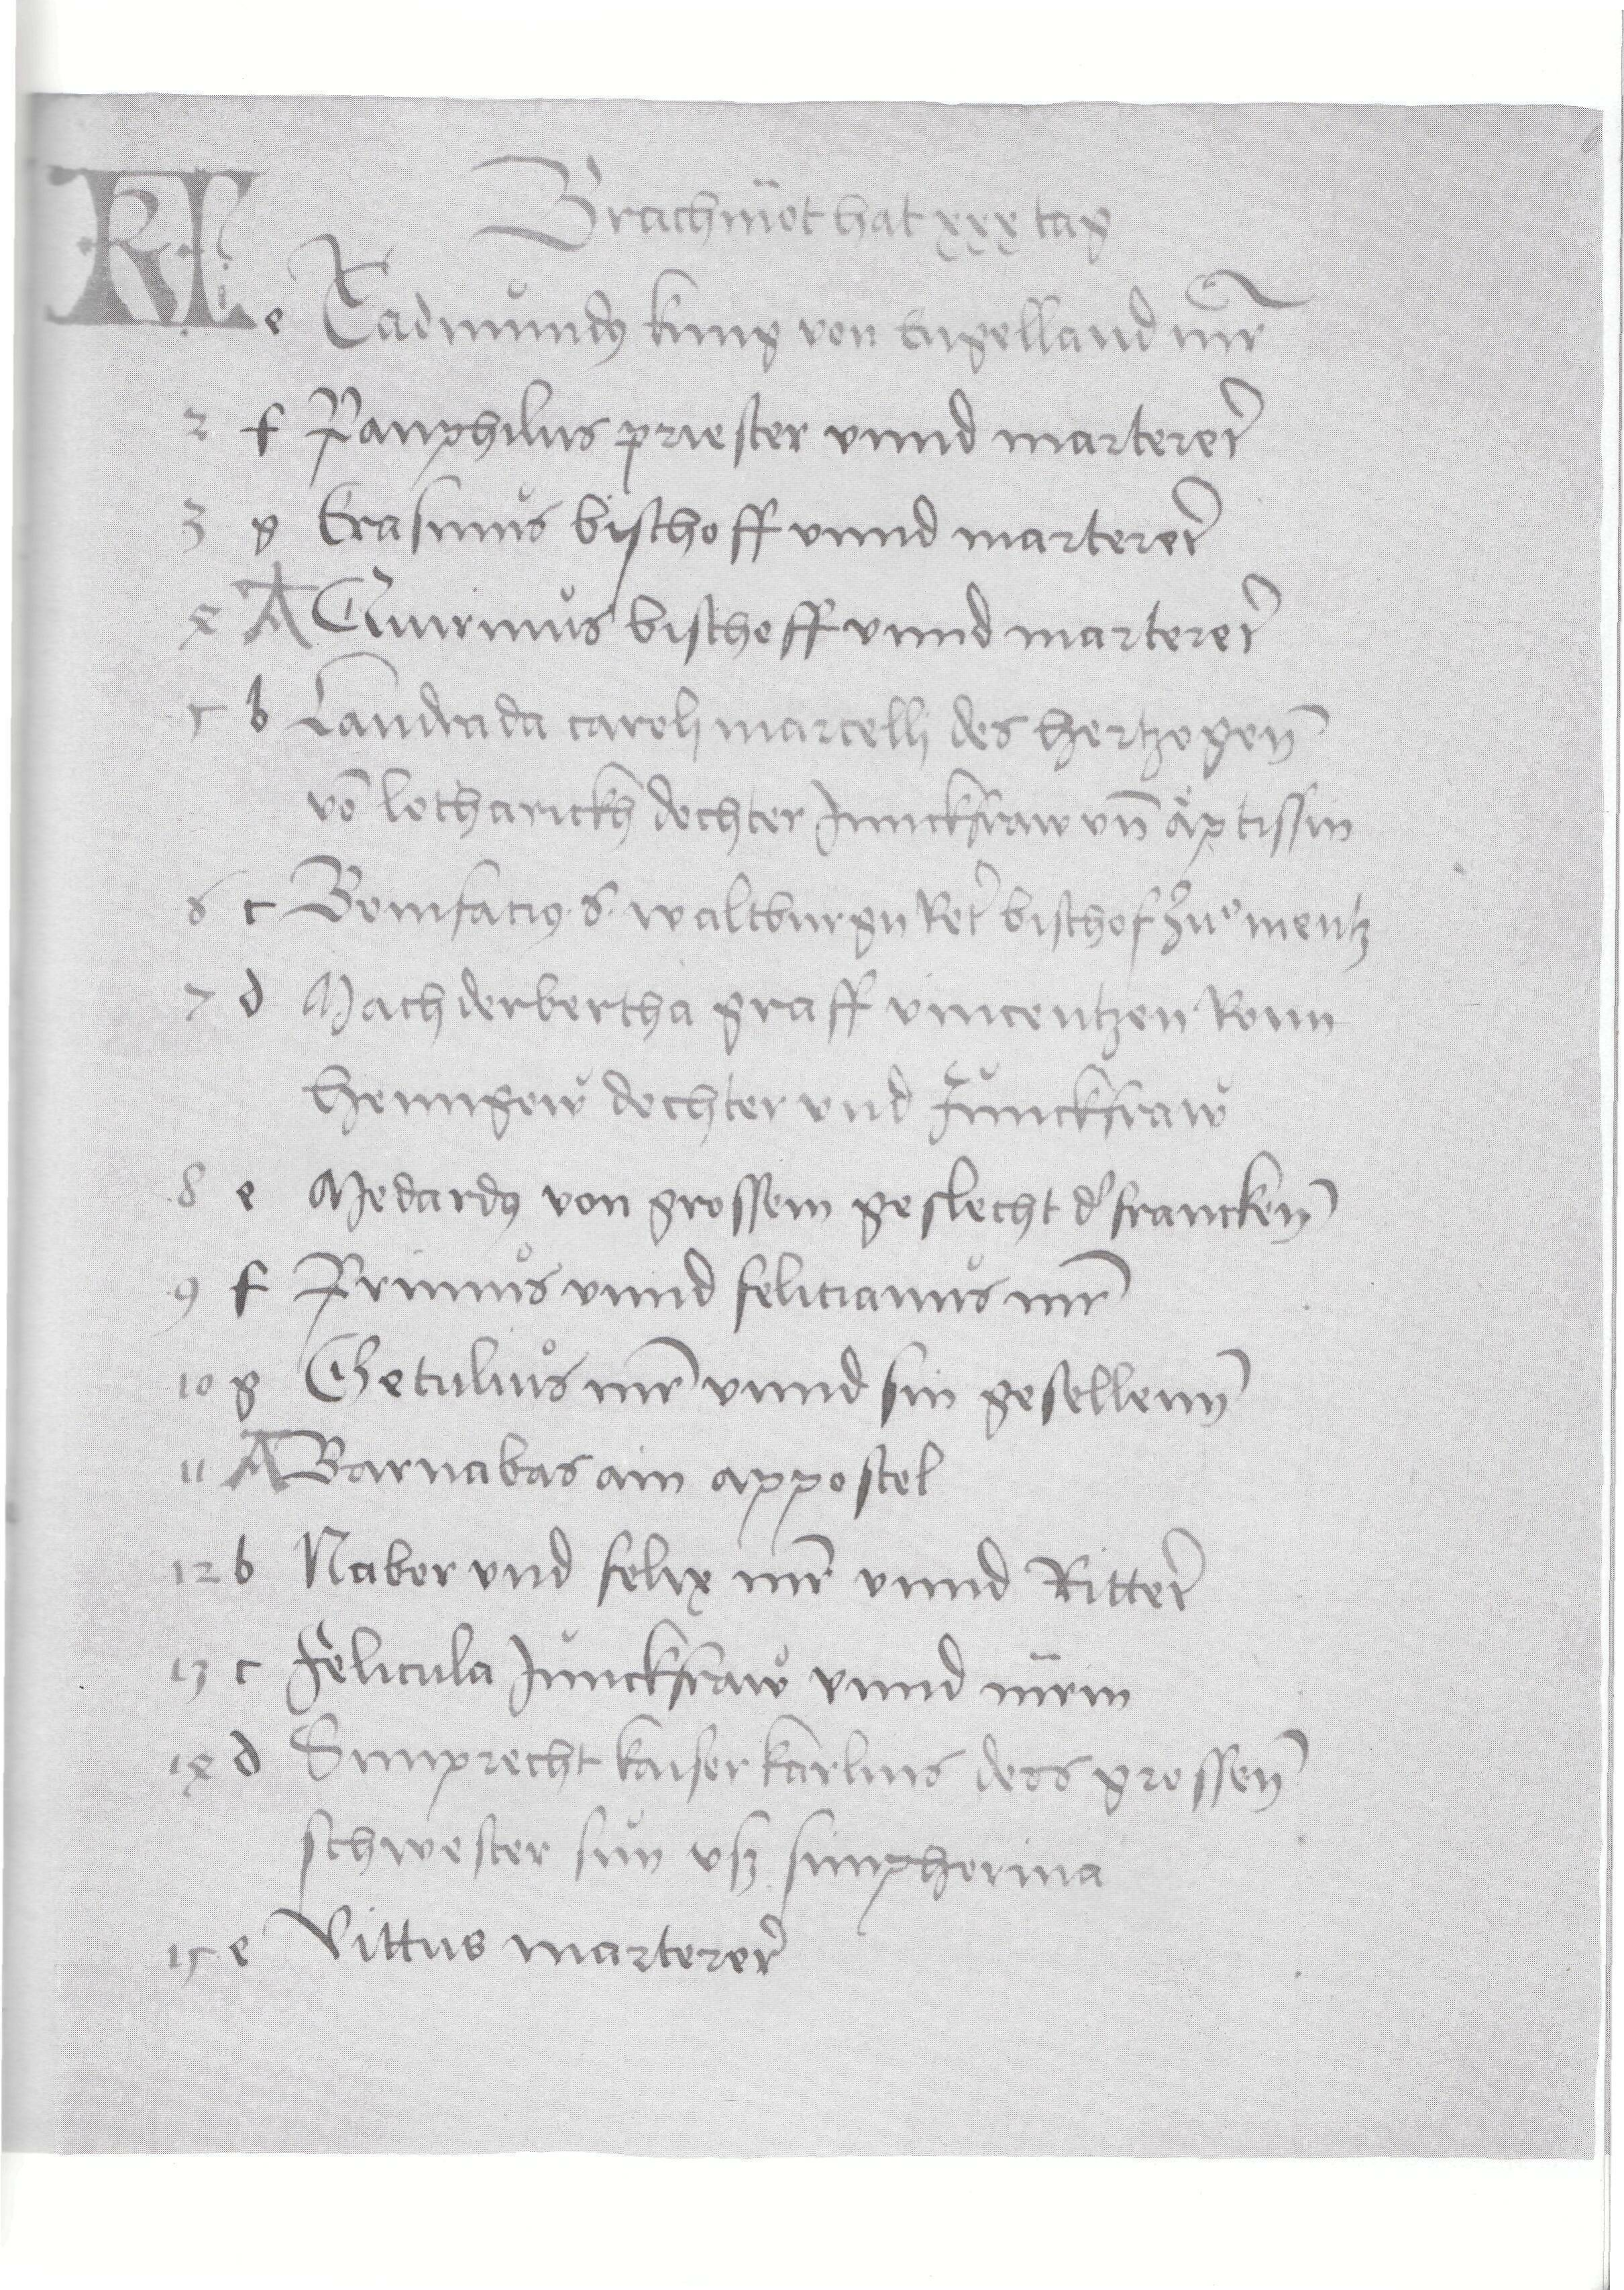 Kl
Brachmot hat xxx tag
e Eadmundus king von Engelland mr
2 f Panphilus priester unnd marterer
3 g Erasmus bischoff vnnd marterer
4 A Quirinus bischoff vnnd marterer
5 b Landrada caroli marcelli des hertzogen
vo lotharickh dochter Junckfraw vn äptissin
6 c Bonifacius S. waltburgn Ret bischof zu mentz
7 d Machderbertha graff vincentzen Konn
hennigow dochter vnd Junckfraw
8 e Medardus von grossem geslecht d' francken
9 f Primus vnnd felicianus mr
10 g Getulius mr vnnd sin gesellenn
11 A Barnabas ain appostel
12 b Nabor vnd felix mr vnnd Ritter
13 c Felicula Junckfraw vnnd mrin
14 d Simprecht kaiser karlus dess grossen
schwester sun vsz simphorina
15 e Vittus marterer